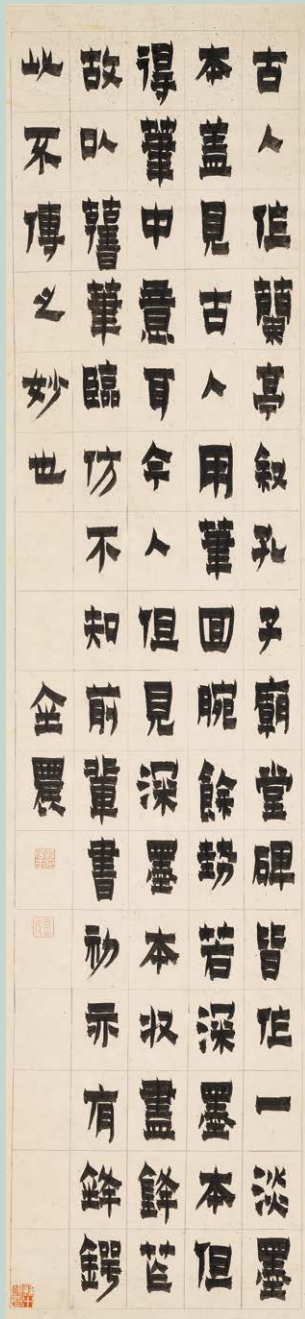 古人作蘭亭叙孔子廟堂碑皆作一淡墨
本蓋見古人用筆回腕餘勢若深墨本但
得筆中意耳今人但見深墨本收盡鋒芒
故以舊筆臨仿不知前輩書初亦有鋒鍔
此不傳之妙也
金農